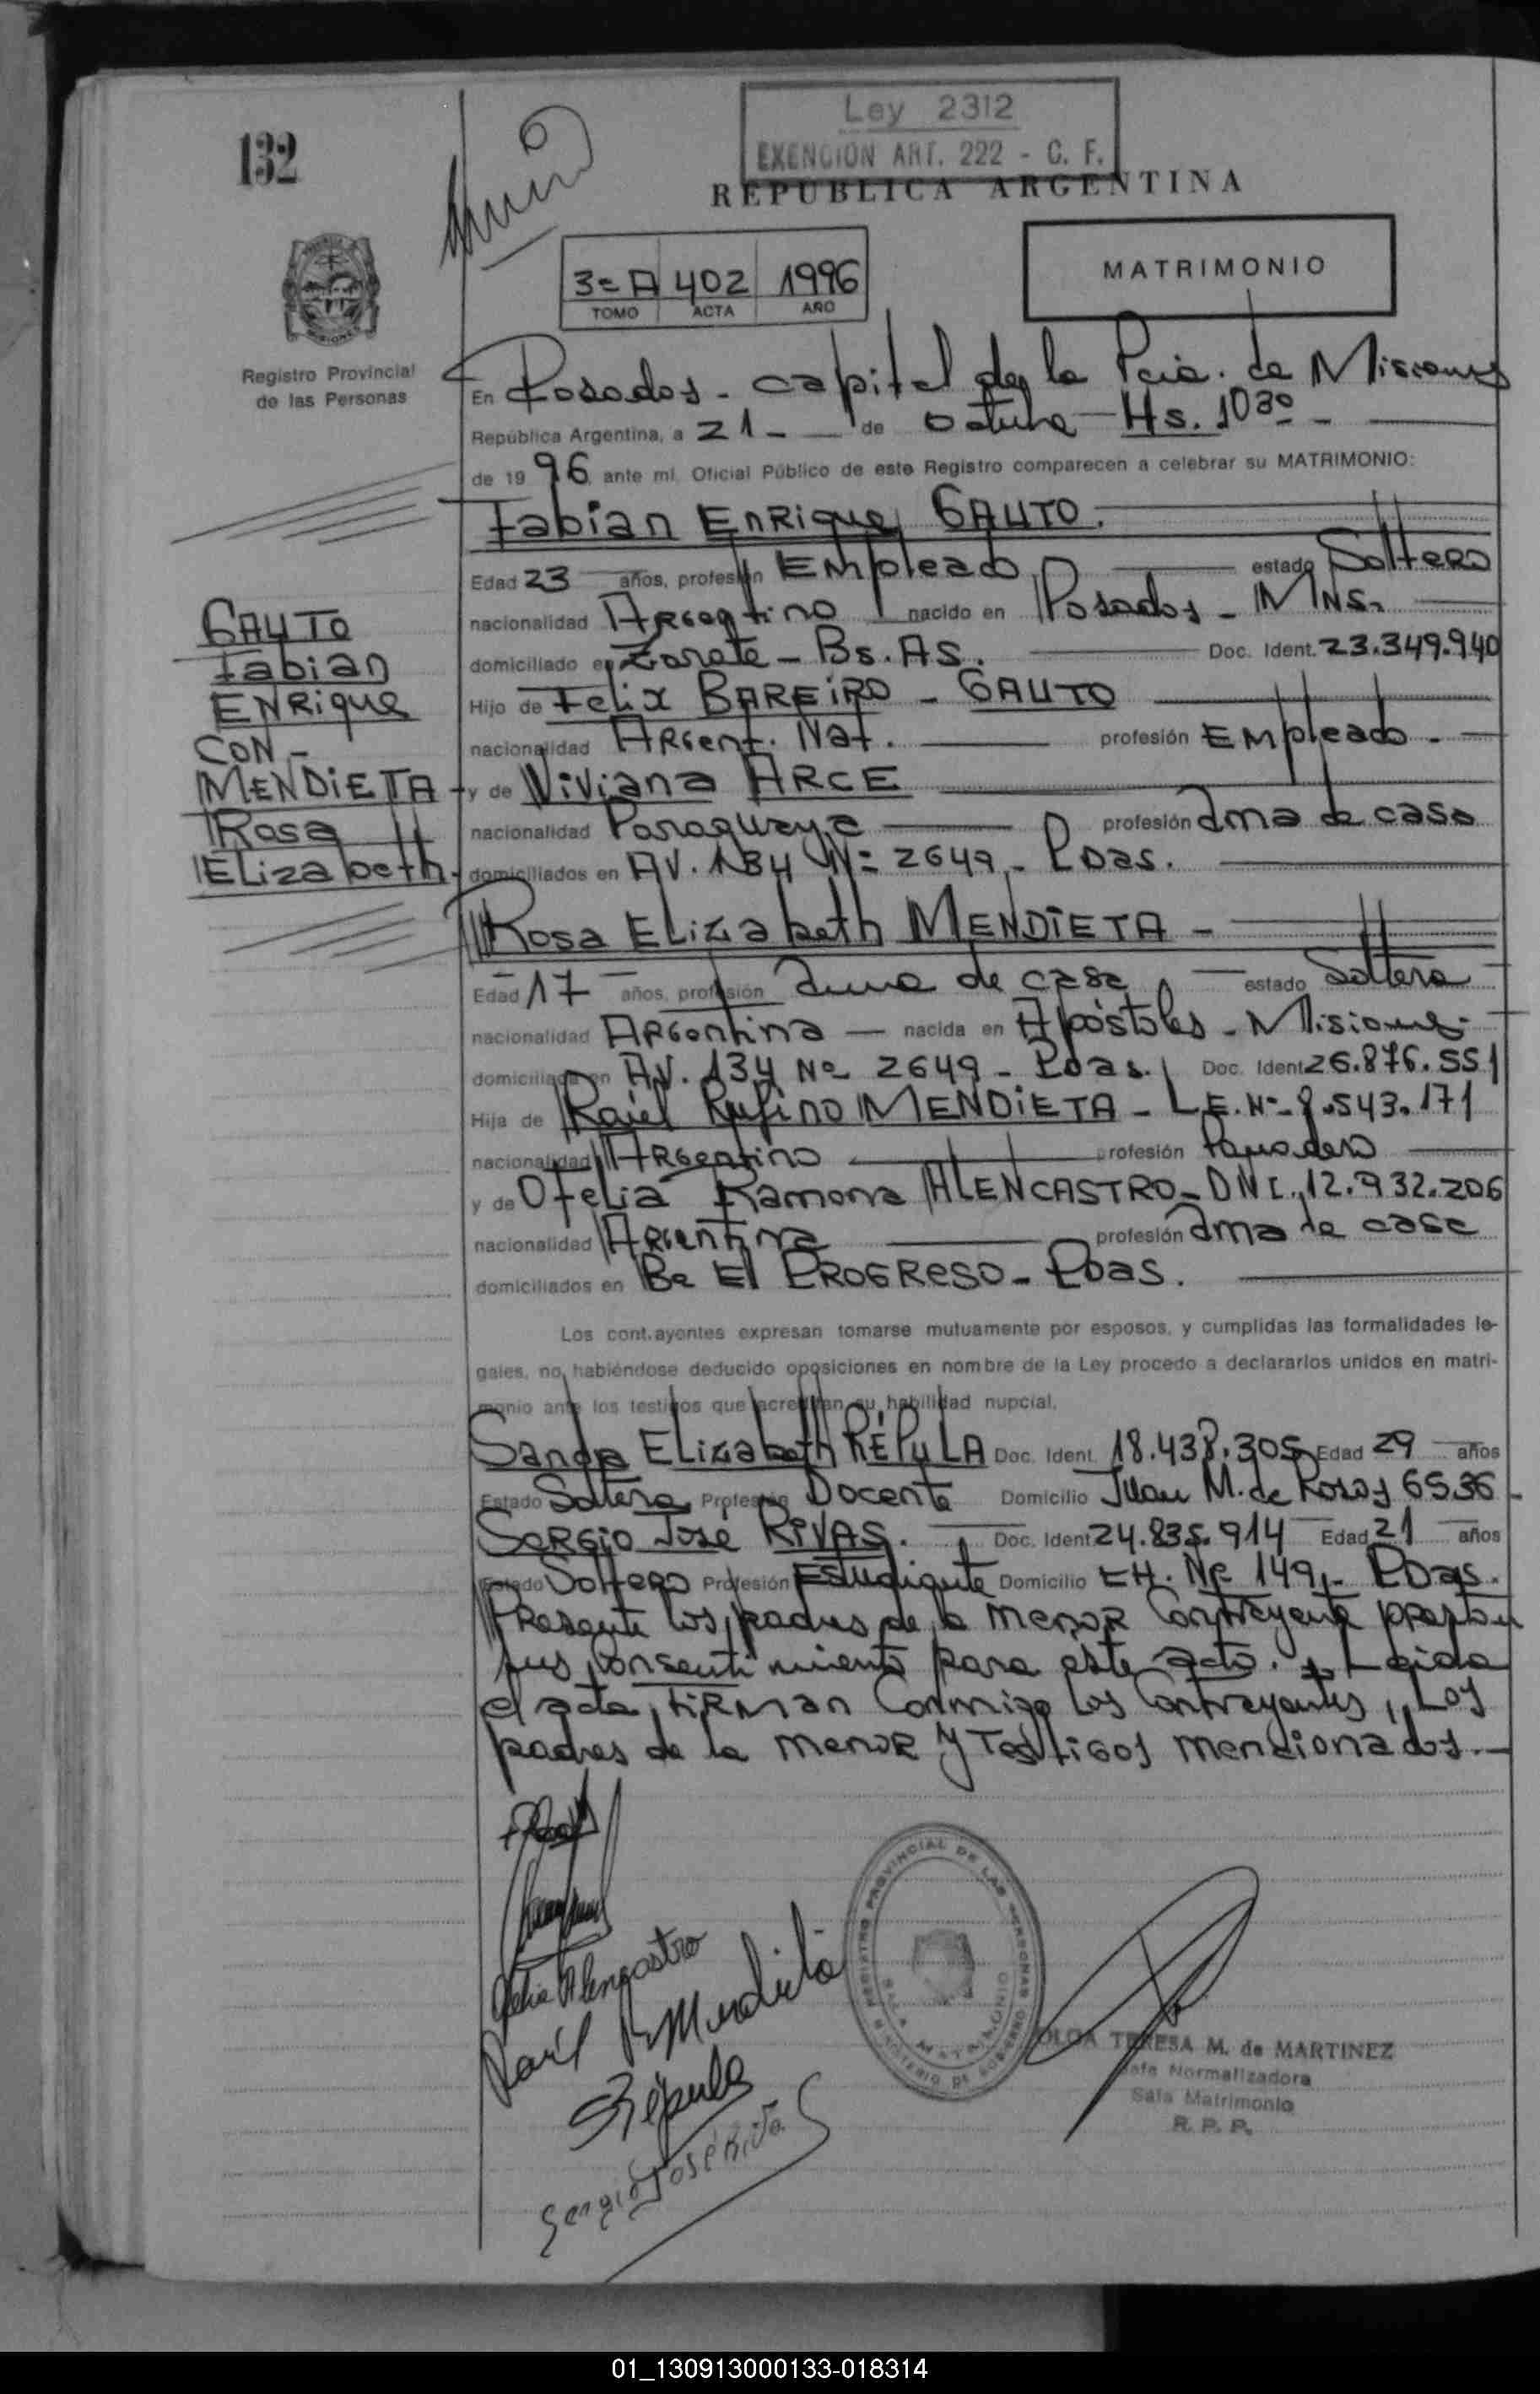 132
Ley 2312
EXENCION ART. 222 - C. F.
REPUBLICA ARGENTINA
3º A 402 1996
TOMO ACTA AÑO
MATRIMONIO
Registro Provincial
de las Personas
En Posadas - capital de la Pcia. de Misiones
República Argentina, a 21 - de octubre Hs. 10 30 -
de 1996 ante mi, Oficial Público de este Registro comparecen a celebrar su MATRIMONIO:
Fabian Enrique GAUTO.
Edad 23 años, profesión Empleado estado Soltero
nacionalidad Argentino nacido en Posadas - Mns.
domiciliado en Zarate - Bs. As. Doc. Ident. 23.349.940
Hijo de Felix BAREIRO - GAUTO
nacionalidad Argent. Nat. profesión Empleado -
y de Viviana ARCE
nacionalidad Paraguaya profesión ama de casa
domiciliados en AV. 134 Nº 2649 - Pdas.
GAUTO
Fabian
ENRique
CON -
MENDIETA
Rosa
Elizabeth.
Rosa Elizabeth MENDIETA -
Edad 17 años, profesión ama de casa estado Soltera
nacionalidad Argentina nacida en Apóstoles - Misiones -
domiciliada en AV. 134 Nº 2649 - Pdas. Doc. Ident 26.876.551
Hija de Raúl Rufino MENDIETA - L.E. Nº 8.543.171
nacionalidad Argentino profesión Panadero
y de Ofelia Ramona ALENCASTRO - DNI. 12.932.206
nacionalidad Argentina profesión ama de casa
domiciliados en Bº El PROGRESO - Pdas.
Los cont.ayentes expresan tomarse mutuamente por esposos, y cumplidas las formalidades le-
gales, no habiéndose deducido oposiciones en nombre de la Ley procedo a declararlos unidos en matri-
monio ante los testigos que acreditan su habilidad nupcial.
Sandra Elizabeth RÉPULA Doc. Ident. 18.438.305 Edad 29 años
Estado Soltera Profesión Docente Domicilio Juan M. de Rosas 6536 -
Sergio José RIVAS. Doc. Ident 24.835.914 Edad 21 años
Estado Soltero Profesión Estudiante Domicilio CH. Nº 149 - Pdas.
Presente los padres de la menor contrayente prestan
sus consentimiento para este acto. Leida
el acta, firman conmigo los contrayentes, los
padres de la menor y testigos mencionados. -
Ofelia Alencastro
Raúl R Mendieta
SRépula
Sergio José Rivas
REGISTRO PROVINCIAL DE LAS PERSONAS
MINISTERIO DE GOBIERNO
SALA MATRIMONIO
OLGA TERESA M. de MARTINEZ
Jefe Normalizadora
Sala Matrimonio
R. P. P.
01_130913000133-018314